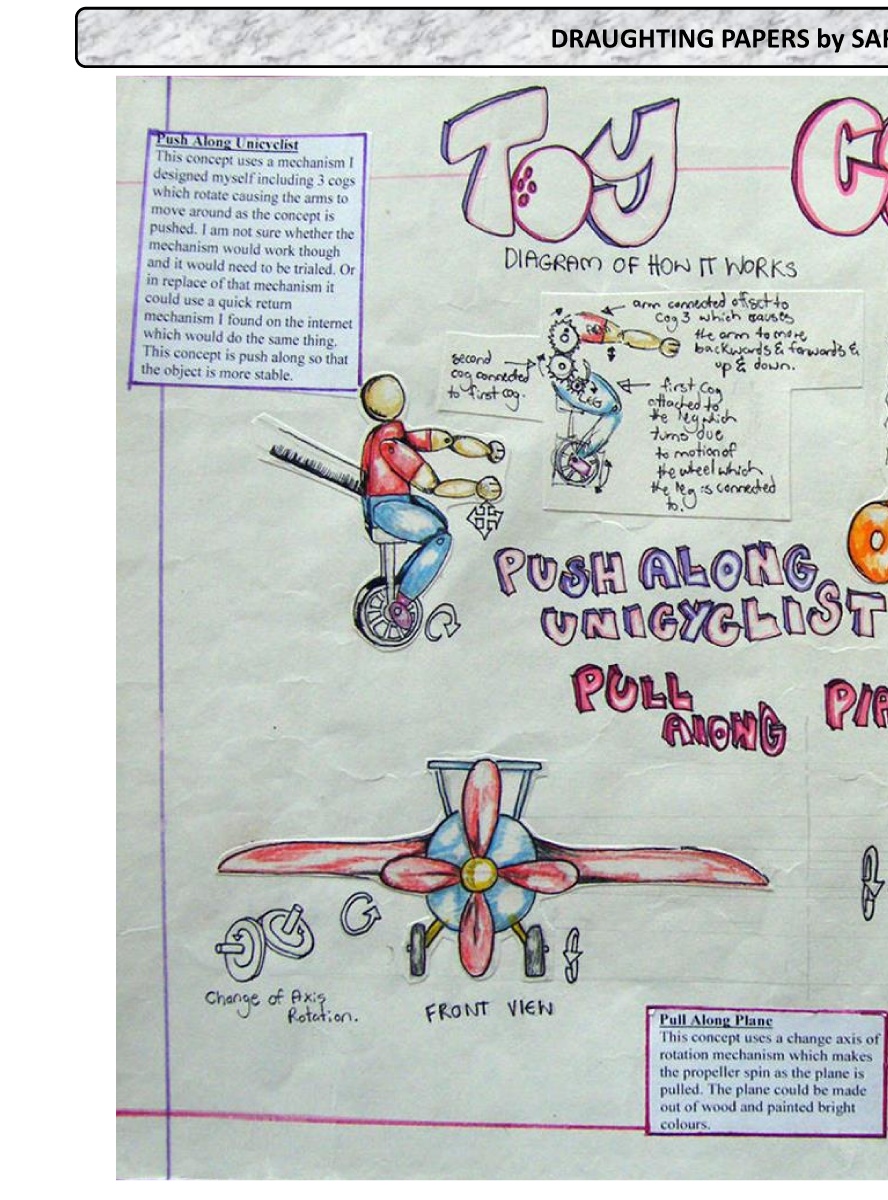 DRAUGHTING PAPERS by
Toy
Push Along Unicyclist
This concept uses a mechanism I
designed myself including 3 cogs
which rotate causing the arms to
move around as the concept is
pushed. I am not sure whether the
mechanism would work though
and it would need to be trialed. Or
in replace of that mechanism it
could use a quick return
mechanism I found on the internet
which would do the same thing.
This concept is push along so that
the object is more stable.
DIAGRAM OF HOW IT WORKS
arm connected offset to
Cog 3 which causes
the arm to move
backwards & forwards &
up & down.
second
cog connected
to first cog.
LEG
first Cog
attached to
the leg which
turns due
to motion of
the wheel which
the leg is connected
to.
PUSH ALONG
UNICYCLIST
PULL
ALONG
Change of Axis
Rotation.
FRONT VIEW
Pull Along Plane
This concept uses a change axis of
rotation mechanism which makes
the propeller spin as the plane is
pulled. The plane could be made
out of wood and painted bright
colours.